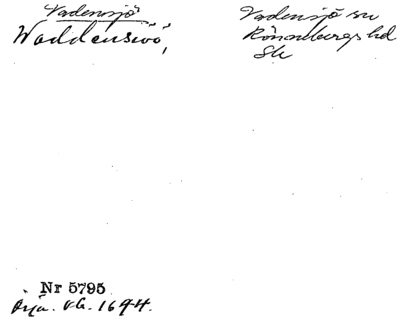 Vadensjö
Waddensiöö,
Vadensjö sn
Rönnebergs hd
Sk
Nr 5795
1644.